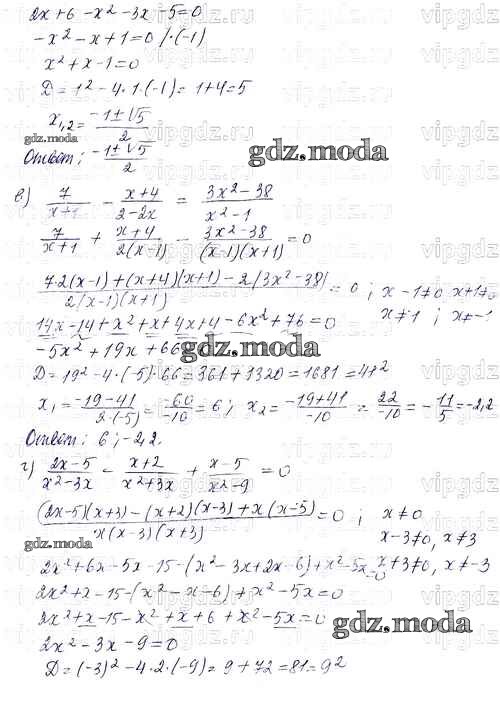 2x+6-x²-3x-5=0
-x²-x+1=0 /·(-1)
x²+x-1=0
D=1²-4·1·(-1)=1+4=5
x₁,₂=(-1±√5)/2
gdz.moda
Ответ: (-1±√5)/2
gdz.moda
в) 7/(x+1) - (x+4)/(2-2x) = (3x²-38)/(x²-1)
7/(x+1) + (x+4)/(2(x-1)) - (3x²-38)/((x-1)(x+1)) =0
(7·2(x-1)+(x+4)(x+1)-2(3x²-38))/(2(x-1)(x+1)) =0 ; x-1≠0 x+1≠0
x≠1 ; x≠-1
14x-14+x²+x+4x+4-6x²+76=0
-5x²+19x+66
gdz.moda
D=19²-4·(-5)·66=361+1320=1681=41²
x₁=(-19-41)/(2·(-5))=(-60)/(-10)=6; x₂=(-19+41)/(-10)=22/(-10)=-11/5=-2,2
Ответ: 6; -2,2.
г) (2x-5)/(x²-3x) - (x+2)/(x²+3x) + (x-5)/(x²-9) =0
((2x-5)(x+3)-(x+2)(x-3)+x(x-5))/(x(x-3)(x+3)) =0 ; x≠0
x-3≠0, x≠3
gdz.moda
x+3≠0, x≠-3
2x²+6x-5x-15-(x²-3x+2x-6)+x²-5x=0
2x²+x-15-(x²-x-6)+x²-5x=0
2x²+x-15-x²+x+6+x²-5x=0
gdz.moda
2x²-3x-9=0
D=(-3)²-4·2·(-9)=9+72=81=9²